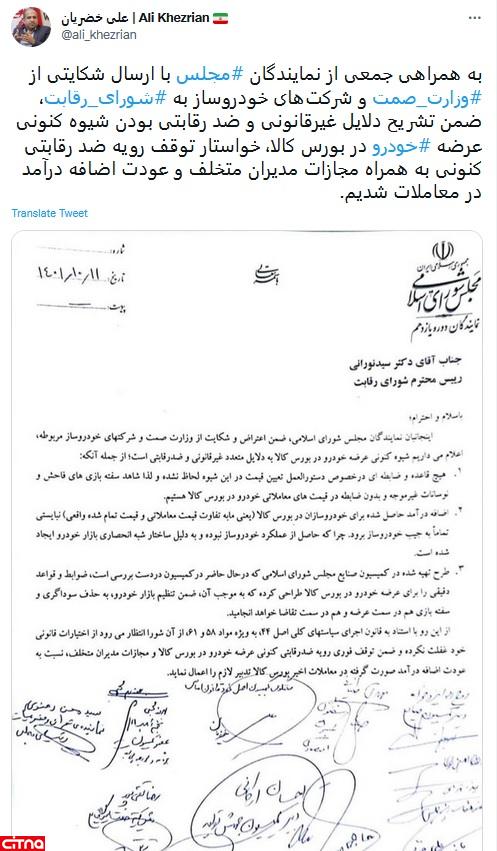 علی خضریان | Ali Khezrian
@ali_khezrian
به همراهی جمعی از نمایندگان #مجلس با ارسال شکایتی از
#وزارت_صمت و شرکت‌های خودروساز به #شورای_رقابت،
ضمن تشریح دلایل غیرقانونی و ضد رقابتی بودن شیوه کنونی
عرضه #خودرو در بورس کالا، خواستار توقف رویه ضد رقابتی
کنونی به همراه مجازات مدیران متخلف و عودت اضافه درآمد
در معاملات شدیم.
Translate Tweet
جمهوری اسلامی ایران
مجلس شورای اسلامی
نمایندگان دوره یازدهم
شماره:
تاریخ: ۱۴۰۱/۱۰/۱۱
پیوست:
جناب آقای دکتر سیدنورانی
رییس محترم شورای رقابت
باسلام و احترام؛
اینجانبان نمایندگان مجلس شورای اسلامی، ضمن اعتراض و شکایت از وزارت صمت و شرکتهای خودروساز مربوطه،
اعلام می داریم شیوه کنونی عرضه خودرو در بورس کالا به دلایل متعدد غیرقانونی و ضدرقابتی است؛ از جمله آنکه:
۱. هیچ قاعده و ضابطه ای درخصوص دستورالعمل تعیین قیمت در این شیوه لحاظ نشده و لذا شاهد سفته بازی های فاحش و
نوسانات غیرموجه و بدون ضابطه در قیمت های معاملاتی خودرو در بورس کالا هستیم.
۲. اضافه درآمد حاصل شده برای خودروسازان در بورس کالا (یعنی مابه تفاوت قیمت معاملاتی و قیمت تمام شده واقعی) نبایستی
تماماً به جیب خودروساز برود. چرا که حاصل از عملکرد خودروساز نبوده و به دلیل ساختار شبه انحصاری بازار خودرو ایجاد
شده است.
۳. طرح تهیه شده در کمیسیون صنایع مجلس شورای اسلامی که درحال حاضر درکمیسیون دردست بررسی است، ضوابط و قواعد
دقیقی را برای عرضه خودرو در بورس کالا طراحی کرده که به موجب آن، ضمن تنظیم بازار خودرو، به حذف سوداگری و
سفته بازی هم در سمت عرضه و هم در سمت تقاضا خواهد انجامید.
از این رو با استناد به قانون اجرای سیاستهای کلی اصل ۴۴، به ویژه مواد ۵۸ و ۶۱، از آن شورا انتظار می رود از اختیارات قانونی
خود غفلت نکرده و ضمن توقف فوری رویه ضدرقابتی کنونی عرضه خودرو در بورس کالا و مجازات مدیران متخلف، نسبت به
عودت اضافه درآمد صورت گرفته در معاملات اخیر بورس کالا تدبیر لازم را اعمال نماید.
احسان ارکانی
CITNA